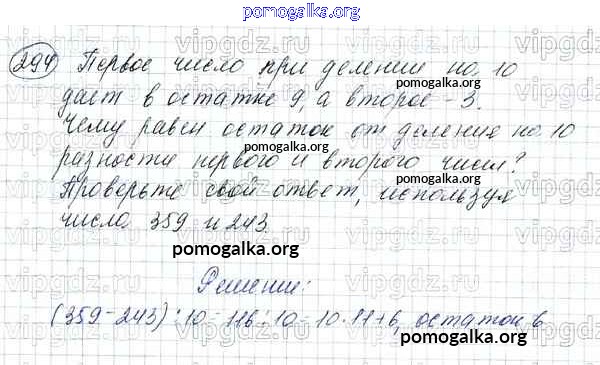 pomogalka.org
294 Первое число при делении на 10
pomogalka.org
даёт в остатке 9, а второе - 3.
Чему равен остаток от деления на 10
разности первого и второго чисел?
Проверьте свой ответ, используя
числа 359 и 243.
pomogalka.org
pomogalka.org
Решение:
(359-243):10=116:10=10·11+6, остаток 6
pomogalka.org
pomogalka.org